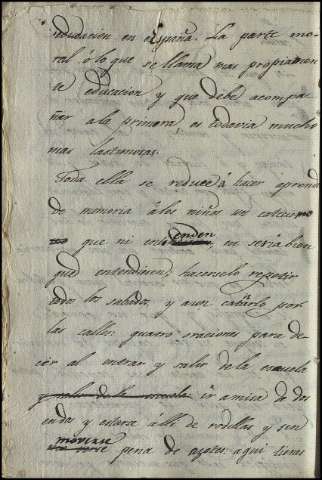 educacion en España. La parte mo-
ral ó lo que se llama mas propiamen
te educacion y que debe acompa-
ñar a la primera es todavia mucho
mas lastimosa.
Toda ella se reduce á hacer aprend
de memoria á los niños un catecismo
que ni entienden, ni seria bien
que entendiesen, hacerselo repetir
todos los sabados, y aun cantarlo por
las calles, quatro oraciones para de-
cir al entrar y salir de la escuela
y salir de la escuela ir a misa de dos
en dos y estarse alli de rodillas y sin
moverse pena de azotes: aqui tienes